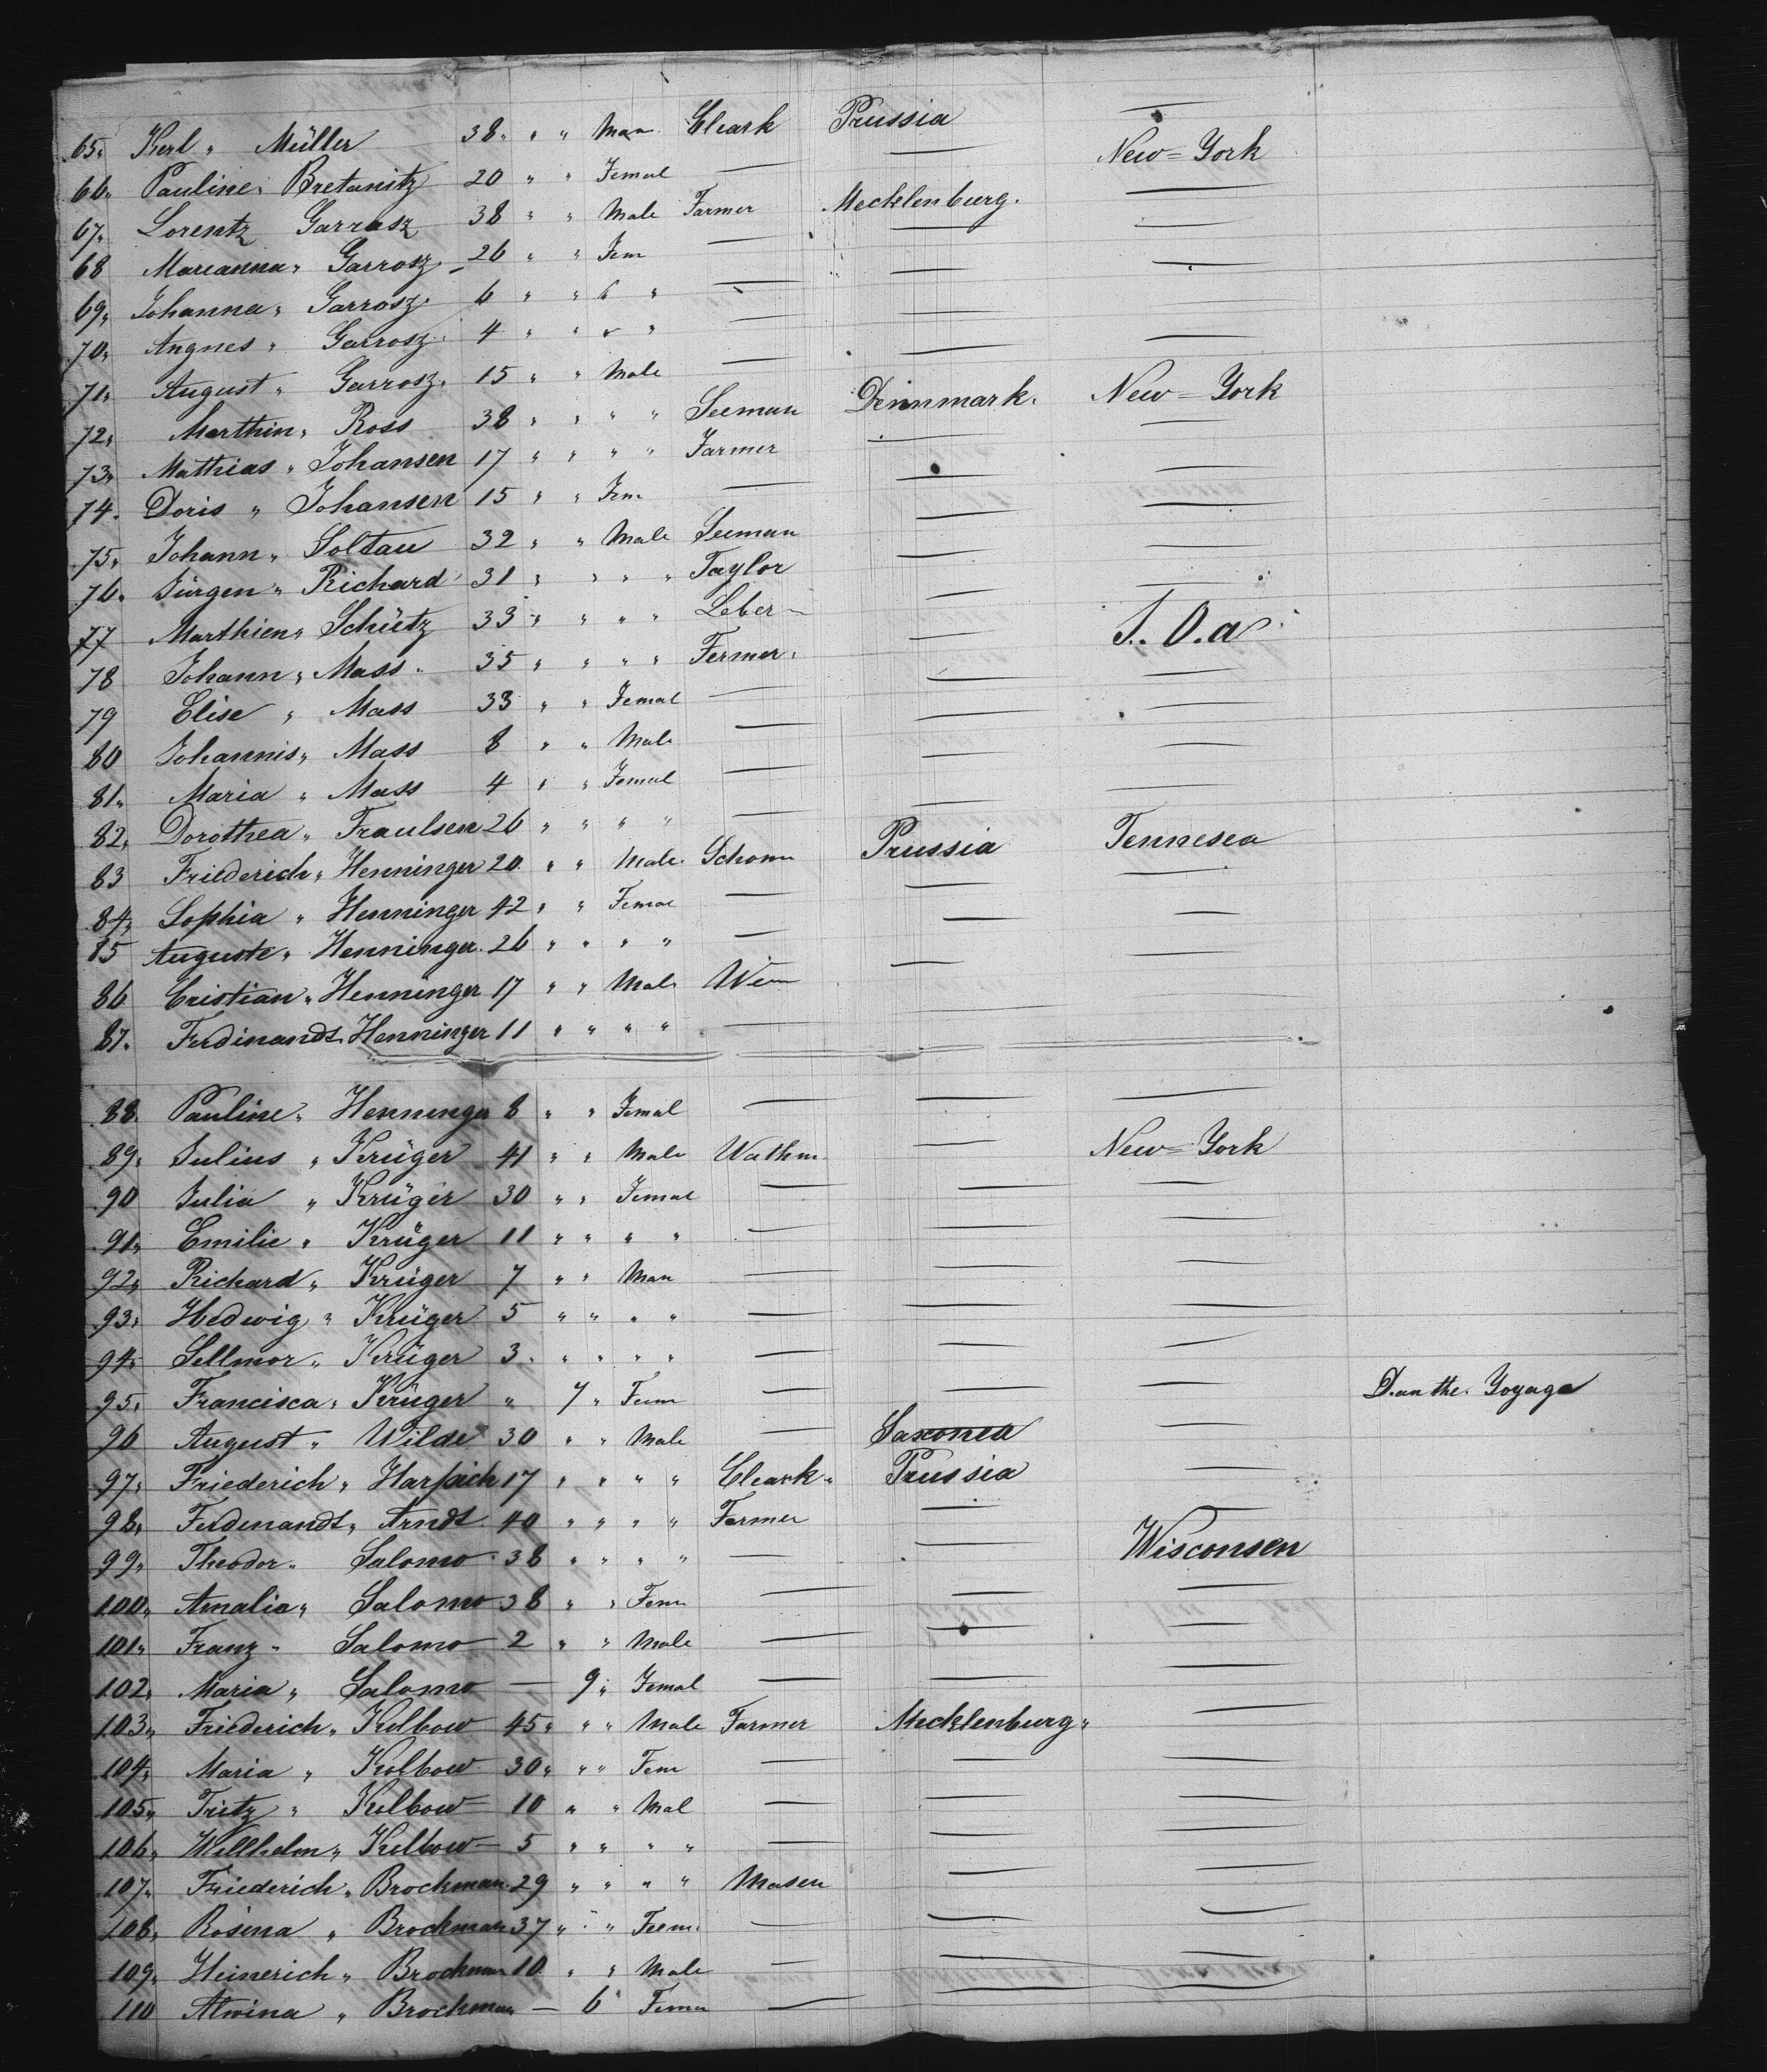 65. Kerl " Müller 38 " " " Man Cleark Prussia —
66. Pauline " Bretanitz 20 " " Femal — — New=York
67. Lorentz Garrosz 38 " " Male Farmer Mecklenburg. —
68 Marianna " Garrosz 26 " " Fem — — —
69. Johanna " Garrosz 6 " " " " — — —
70. Angnes " Garrosz 4 " " " " — —
71. August " Garrosz 15 " " Male — — —
72. Marthin " Ross 38 " " " " Seeman Dennmark. New=York
73. Mathias " Johansen 17 " " " " Farmer — —
74. Doris " Johansen 15 " " Fem — —
75. Johann " Soltau 32 " " Male Seeman — —
76. Jürgen " Richard 31 " " " " Taylor — —
77 Marthien " Schütz 33 " " " " Leber — —
78 Johann " Mass 35 " " " " Fermer. —
79 Elise " Mass 33 " " Femal — — —
80 Johannis " Mass 8 " " Male — — —
81. Maria " Mass 4 " " Femal — — —
82. Dorothea " Fraulsen 26 " " " " — — —
83 Friederich " Henninger 20 " " Male Schom Prussia Tennesea
84. Sophia " Henninger 42 " " Femal — — —
85 Auguste " Henninger 26 " " " " — — —
86 Cristian " Henninger 17 " " Male —
87. Ferdinandt Henninger 11 " " " " — — —
88. Pauline " Henninger 8 " " Femal — — —
89. Julius " Krüger 41 " " Male Wathm — New=York
90 Julia " Krüger 30 " " Femal — — —
91. Emilie " Krüger 11 " " " " — — —
92. Richard " Krüger 7 " " Man — — —
93. Hedwig " Krüger 5 " " " " — — —
94. Sellmor " Krüger 3 " " " " — — —
95. Francisca " Krüger " 7 " Fem — — — D. an the. Voyage
96 August " Wilde 30 " " Male — Saxonea —
97. Friederich " Harpich 17 " " " " Cleark " Prussia —
98. Ferdenandt " Arndt 40 " " " " Fermer —
99. Theodor " Salomo 38 " " " " — — Wisconsen
100. Amalia " Salomo 38 " " Fem — — —
101. Franz " Salomo 2 " " Male — — —
102. Maria " Salomo — 9 " Femal — — —
103. Friederich " Kolbow 45 " " " Male Farmer Mecklenburg " —
104. Maria " Kolbow 30 " " " Fem — — —
105. Fritz " Kolbow 10 " " Mal — — —
106. Willhelm " Kolbow 5 " " " " — — —
107. Friederich " Brockman 29 " " " " Masen — —
108. Rosina " Brockman 37 " " " Feem — — —
109. Heinerich " Brockman 10 " " Male — — —
110 Alwina " Brockman — 6 Fem —